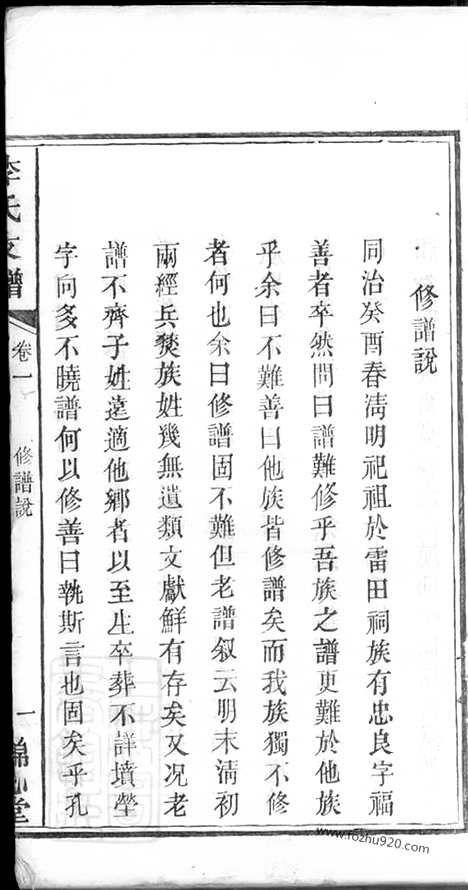 修譜說
同治癸酉春清明祀祖於雷田祠族有忠良字福
善者卒然問曰譜難修乎吾族之譜更難於他族
乎余曰不難善曰他族皆修譜矣而我族獨不修
者何也余曰修譜固不難但老譜叙云明末清初
兩經兵燹族姓幾無遺類文獻鮮有存矣又况老
譜不齊子姓遠適他鄉者以至生卒葬不詳墳塋
字向多不曉譜何以修善曰執斯言也固矣乎孔
李氏支譜
卷一
修譜說
一
堂
www.fozhu920.com